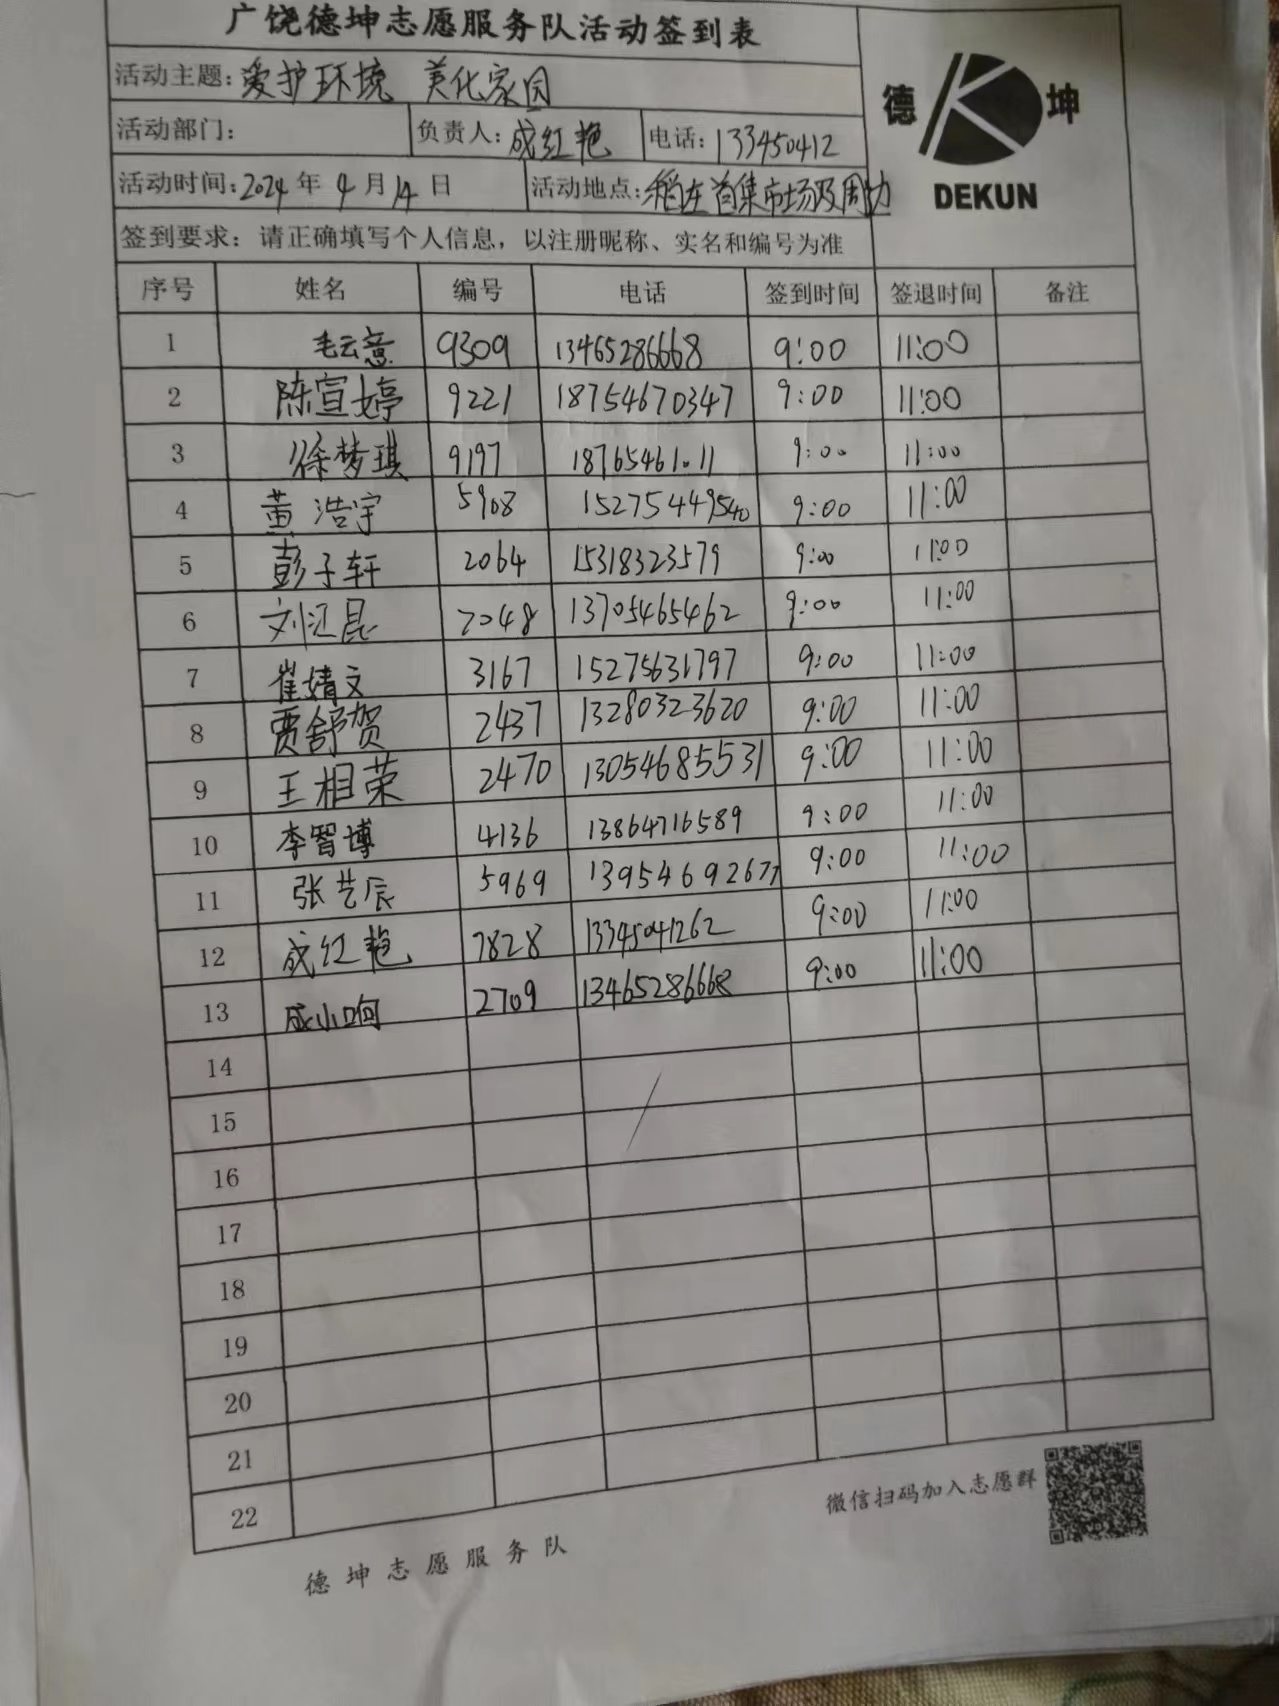 广饶德坤志愿服务队活动签到表
活动主题：爱护环境 美化家园
德 坤
DEKUN
活动部门： 负责人：成红艳 电话：133450412
活动时间：2024年4月14日 活动地点：稻庄首集市场及周边
签到要求：请正确填写个人信息，以注册昵称、实名和编号为准
序号 姓名 编号 电话 签到时间 签退时间 备注
1 毛云意 9309 13465286668 9:00 11:00
2 陈宣婷 9221 18754670347 9:00 11:00
3 徐梦琪 9197 18765461.11 9:00 11:00
4 黄浩宇 5908 15275449540 9:00 11:00
5 彭子轩 2064 15318323579 9:00 11:00
6 刘江昆 7048 13705465462 9:00 11:00
7 崔婧文 3167 15275631797 9:00 11:00
8 贾舒贺 2437 13280323620 9:00 11:00
9 王相荣 2470 13054685531 9:00 11:00
10 李智博 4136 13864716589 9:00 11:00
11 张艺辰 5969 13954692677 9:00 11:00
12 成红艳 7828 13345041262 9:00 11:00
13 成小响 2709 13465286668 9:00 11:00
14
15
16
17
18
19
20
21
22
微信扫码加入志愿群
德坤志愿服务队